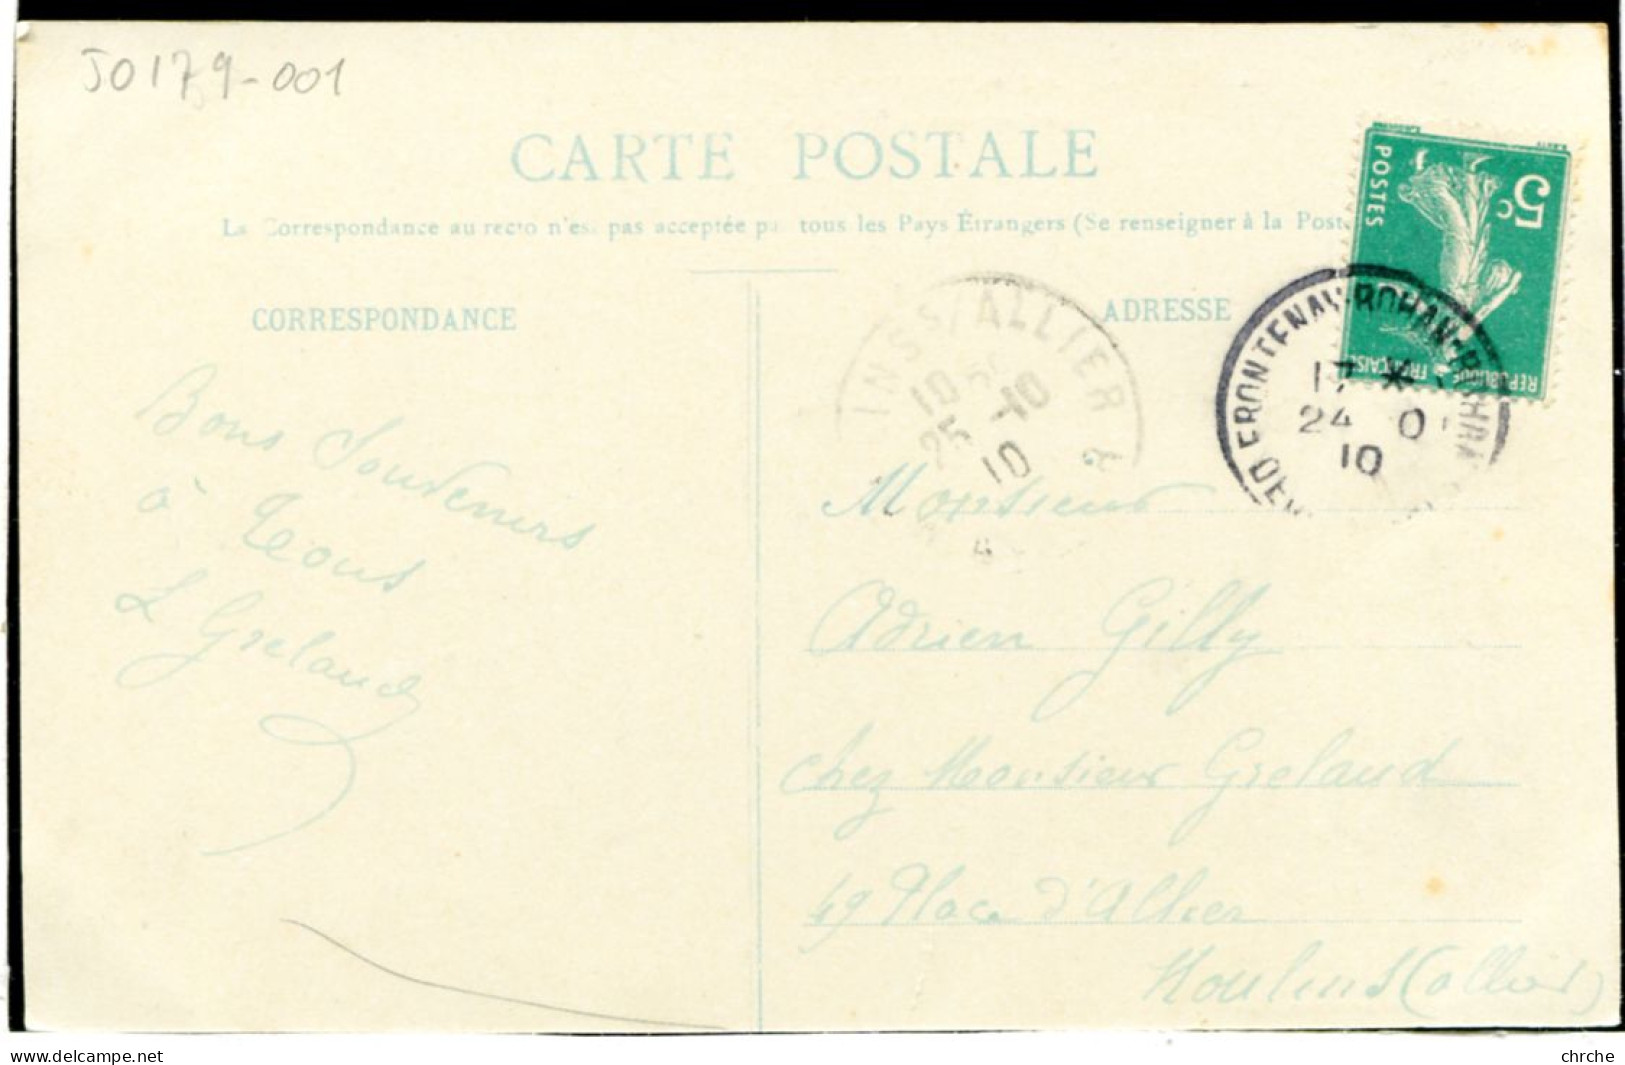 JO179-001
CARTE POSTALE
La Correspondance au recto n'est pas acceptée par tous les Pays Étrangers (Se renseigner à la Poste
CORRESPONDANCE
ADRESSE
Bons Souvenirs
à Tous
L Grelaud
5c
POSTES
REPUBLIQUE FRANÇAISE
INS S/ALLIER
10
25 -10
10
FRONTENAY-ROHAN-ROHAN
17 *
24 10
10
Monsieur
Adrien Gilly
chez Monsieur Grelaud
49 Place d'Allier
Moulins (allier)
delcampe.net
chrche